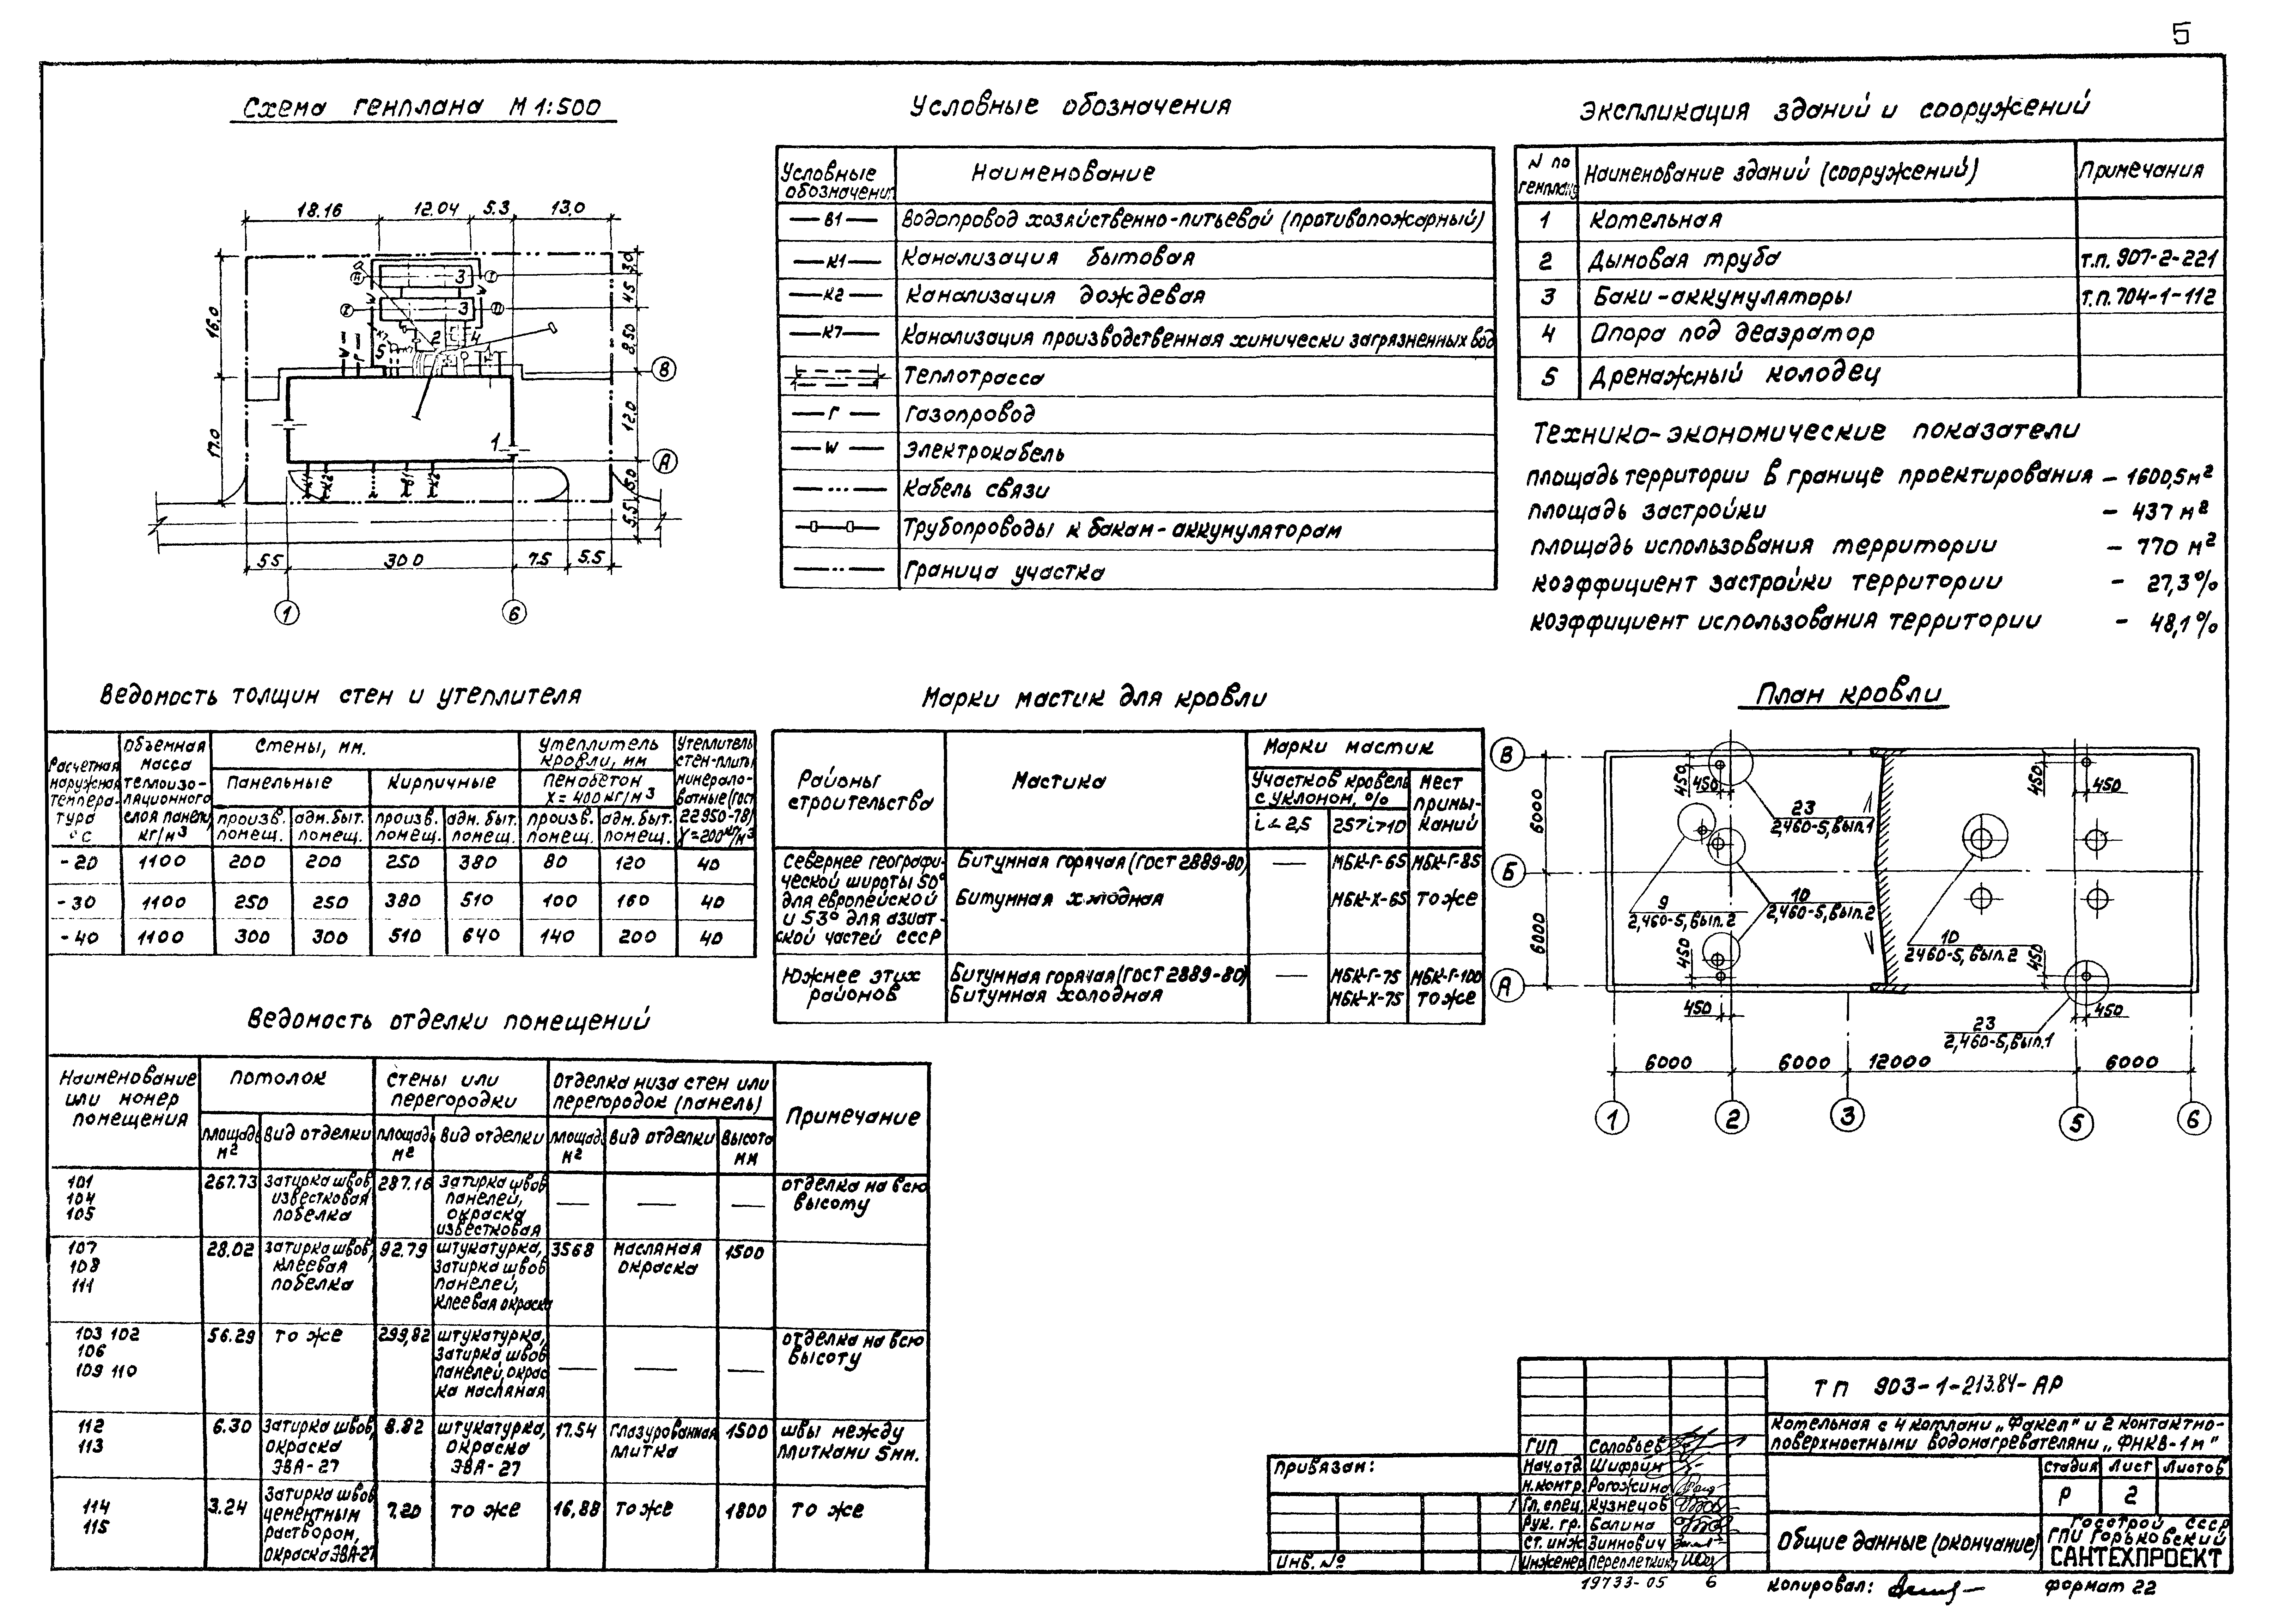 5
Схема генплана М 1:500
18.16 12.04 5.3 13.0
16.0 17.0
3.0 4.5 8.50 12.0 5.0 5.5
3
3
2 4
5
1
В
А
К1 К2 В1 К2
5.5 30.0 7.5 5.5
1 6
Условные обозначения
Условные обозначения
Наименование
В1 Водопровод хозяйственно-питьевой (противопожарный)
К1 Канализация бытовая
К2 Канализация дождевая
К7 Канализация производственная химически загрязненных вод
Теплотрасса
Г Газопровод
W Электрокабель
Кабель связи
Трубопроводы к бакам-аккумуляторам
Граница участка
Экспликация зданий и сооружений
N по генплану
Наименование зданий (сооружений)
Примечания
1 Котельная
2 Дымовая труба т.п. 907-2-221
3 Баки-аккумуляторы т.п. 704-1-112
4 Опора под деаэратор
5 Дренажный колодец
Технико-экономические показатели
площадь территории в границе проектирования – 1600,5 м²
площадь застройки – 437 м²
площадь использования территории – 770 м²
коэффициент застройки территории – 27,3 %
коэффициент использования территории – 48,1 %
Ведомость толщин стен и утеплителя
Расчетная наружная температура °С
Объемная масса теплоизоляционного слоя панели, кг/м3
Стены, мм.
Панельные
Кирпичные
Утеплитель кровли, мм
пенобетон γ=400 кг/м3
Утеплитель стен-плиты минераловатные (ГОСТ 22950-78) γ=200 кг/м3
произв. помещ. адм. быт. помещ. произв. помещ. адм. быт. помещ. произв. помещ. адм. быт. помещ.
-20 1100 200 200 250 380 80 120 40
-30 1100 250 250 380 510 100 160 40
-40 1100 300 300 510 640 140 200 40
Марки мастик для кровли
Районы строительства
Мастика
Марки мастик
Участков кровель с уклоном, %
Мест примыканий
i<2,5 25>i>10
Севернее географической широты 50° для европейской и 53° для азиатской частей СССР
Битумная горячая (ГОСТ 2889-80) — МБК-Г-65 МБК-Г-85
Битумная холодная МБК-Х-65 то же
Южнее этих районов
Битумная горячая (ГОСТ 2889-80) — МБК-Г-75 МБК-Г-100
Битумная холодная МБК-Х-75 то же
План кровли
В
Б
А
6000
6000
450 450
450 450
450 450
450 450
23
2,460-5, вып.1
9
2,460-5, вып.2
10
2,460-5, вып.2
10
2460-5, вып.2
23
2,460-5, вып.1
6000 6000 12000 6000
1 2 3 5 6
Ведомость отделки помещений
Наименование или номер помещения
Потолок
Стены или перегородки
Отделка низа стен или перегородок (панель)
Примечание
площадь м² вид отделки площадь м² вид отделки площадь м² вид отделки высота мм
101 104 105
267.73 затирка швов, известковая побелка
287.16 затирка швов панелей, окраска известковая
— — —
отделка на всю высоту
107 108 111
28.02 затирка швов, клеевая побелка
92.79 штукатурка, затирка швов панелей, клеевая окраска
35.68 масляная окраска 1500
103 102 106 109 110
56.29 то же
299,82 штукатурка, затирка швов панелей, окраска масляная
— — —
отделка на всю высоту
112 113
6.30 затирка швов, окраска ЭВА-27
8.82 штукатурка, окраска ЭВА-27
17.54 глазурованная плитка 1500
швы между плитками 5мм.
114 115
3.24 затирка швов цементным раствором, окраска ЭВА-27
7.20 то же
16,88 то же 1800 то же
Привязан:
Инв. №
ГИП Соловьев
Нач. отд. Шифрин
Н. контр. Рогожина
Гл. спец. Кузнецов
Рук. гр. Балина
Ст. инж. Зимнович
Инженер
19733-05 6
ТП 903-1-213.84-АР
Котельная с 4 котлами „Факел“ и 2 контактно-
поверхностными водонагревателями „ФНКВ-1м“
Стадия Лист Листов
Р 2
Общие данные (окончание)
Госстрой СССР
ГПИ Горьковский
САНТЕХПРОЕКТ
Копировал:
формат 22